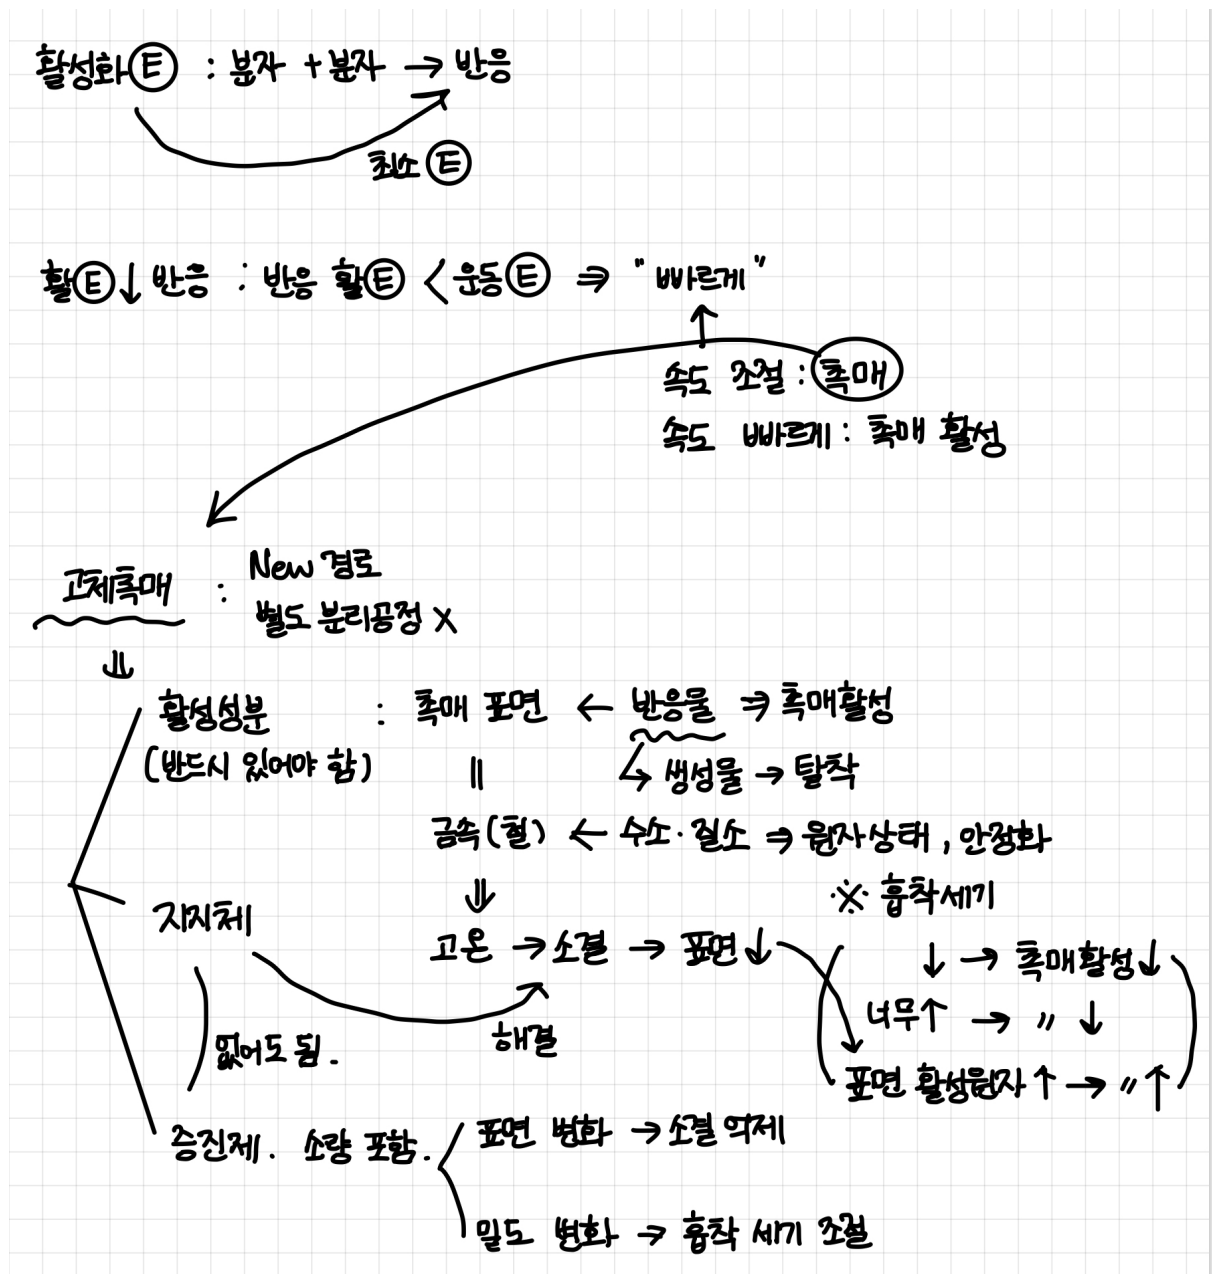 활성화Ⓔ : 분자 + 분자 → 반응
최소 Ⓔ
활Ⓔ↓ 반응 : 반응 활Ⓔ < 운동Ⓔ ⇒ "빠르게"
속도 조절 : 촉매
속도 빠르게 : 촉매 활성
고체촉매 : New 경로
별도 분리공정 X
⇓
활성성분 : 촉매 표면 ← 반응물 ⇒ 촉매활성
(반드시 있어야 함) || ↳ 생성물 → 탈착
금속(철) ← 수소·질소 ⇒ 원자상태, 안정화
⇓ ※ 흡착세기
지지체 고온 → 소결 → 표면↓ ↓ → 촉매활성↓
너무↑ → 〃 ↓
없어도 됨. 해결
표면 활성원자↑ → 〃↑
증진제. 소량 포함. 표면 변화 → 소결 억제
밀도 변화 → 흡착 세기 조절